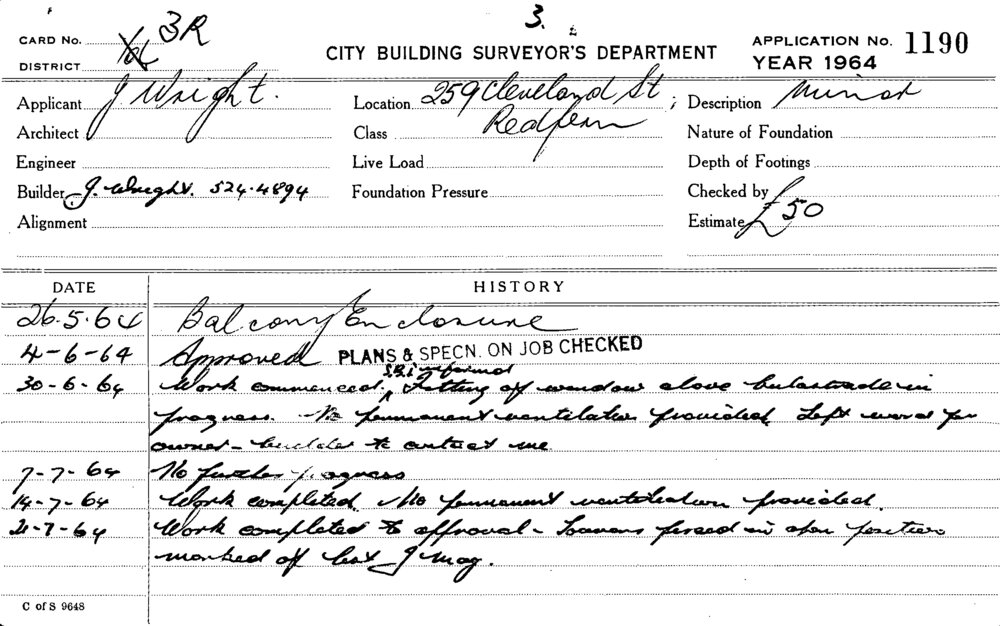 3.
CARD No. 3R
DISTRICT
CITY BUILDING SURVEYOR'S DEPARTMENT
APPLICATION No. 1190
YEAR 1964
Applicant J Wright.
Location 259 Cleveland St
Description Minor
Architect
Class Redfern
Nature of Foundation
Engineer
Live Load
Depth of Footings
Builder J. Wright. 524.4894
Foundation Pressure
Checked by
Alignment
Estimate £50
DATE HISTORY
26.5.64 Balcony Enclosure
4-6-64 Approved PLANS & SPECN. ON JOB CHECKED
informed
30-6-64 Work commenced. Fitting of window above balustrade in
progress. - No permanent ventilation provided, Left word for
owner - builder to contact me
7-7-64 No further progress
14-7-64 Work completed. No permanent ventilation provided.
21-7-64 Work completed to approval - Louvres fixed in open position
marked off list
C of S 9648